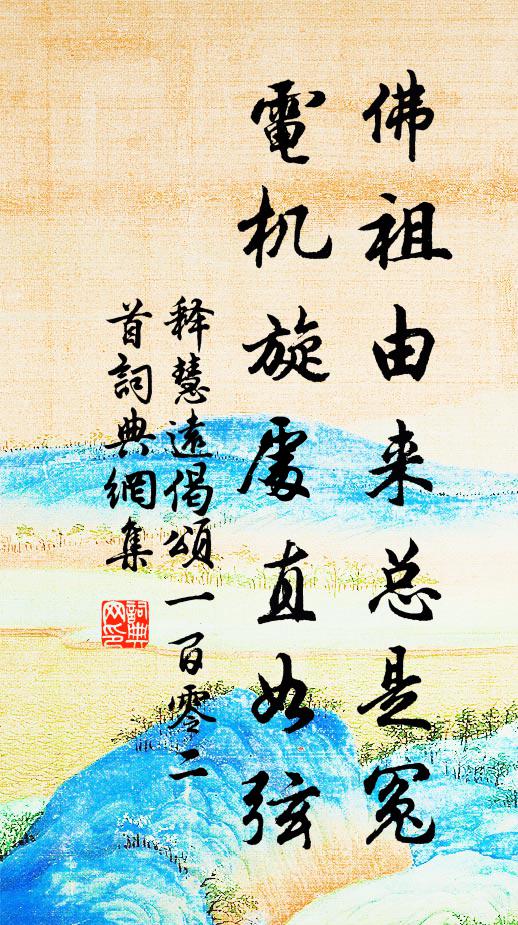 佛祖由来总是冤
電机旋處直如弦
释慧遠偈頌一百零二
首詞典網集
詞典
网印